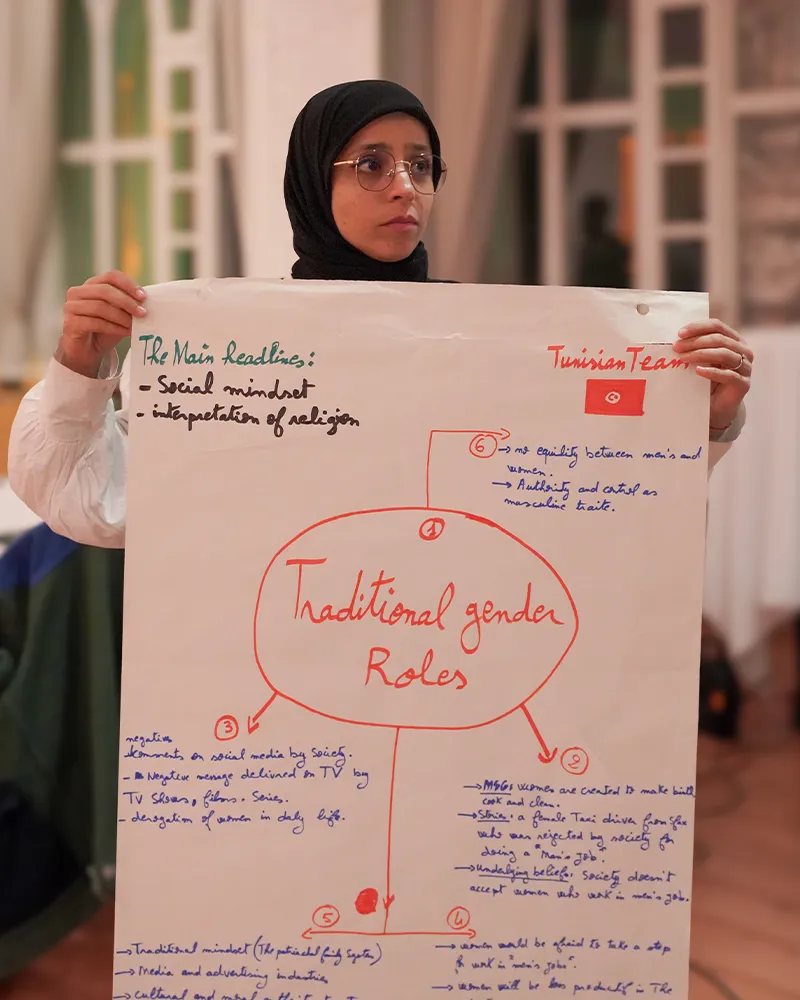 The Main headlines:
- Social mindset
- interpretation of religion
Tunisian Team
6
→ no equility between men's and
women.
→ Authority and control as
masculine traits.
1
Traditional gender
Roles
3
negative
comments on social media by Society.
- Negative message delivred on TV by
TV Shows, films. Series.
- derogation of women in daily life.
2
→ MSG: women are created to make birth
cook and clean.
→ Stories: a female Taxi driver from Sfax
who was rejected by society for
doing a "Man's job".
→ Underlying beliefs: Society doesn't
accept women who work in men's job.
5
→ Traditional mindset (The patriachal family System)
→ Media and advertising industries
→ Cultural and moral
4
→ women would be afraid to take a step
for work in "men's jobs".
→ women will be less productif in The